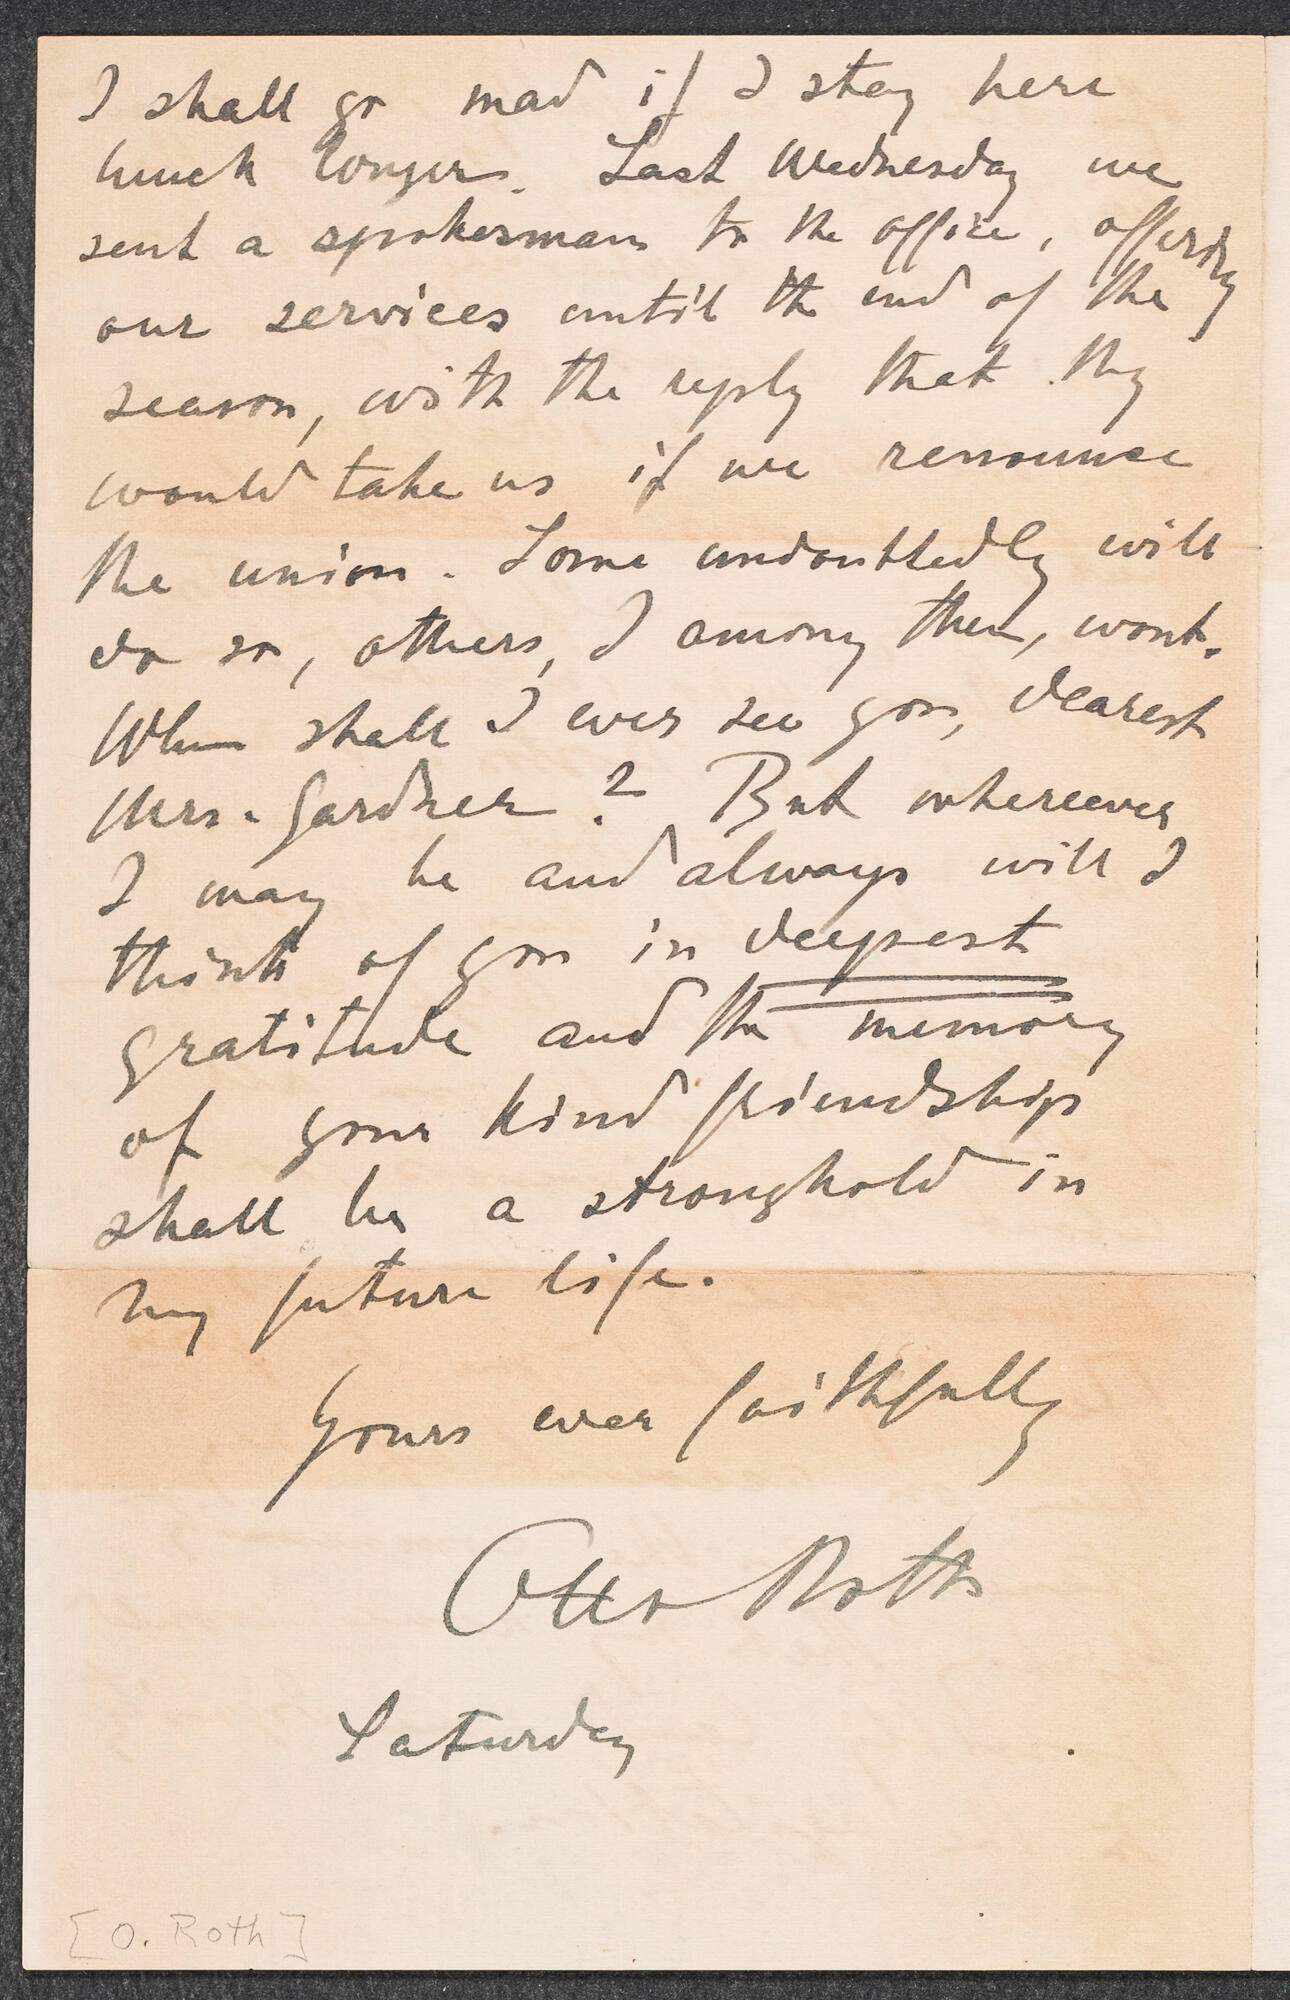 I shall go mad if I stay here
much longer. Last Wednesday we
sent a spokesman to the office, offering
our services until the end of the
season, with the reply that they
would take us if we renounce
the union. Some undoubtedly will
do so, others, I among them, wont.
When shall I ever see you, dearest
Mrs. Gardner? But whereever
I may be and always will I
think of you in deepest
gratitude and the memory
of your kind friendship
shall be a stronghold in
my future life.
Yours ever faithfully
Otto Roth
Saturday
[O. Roth]